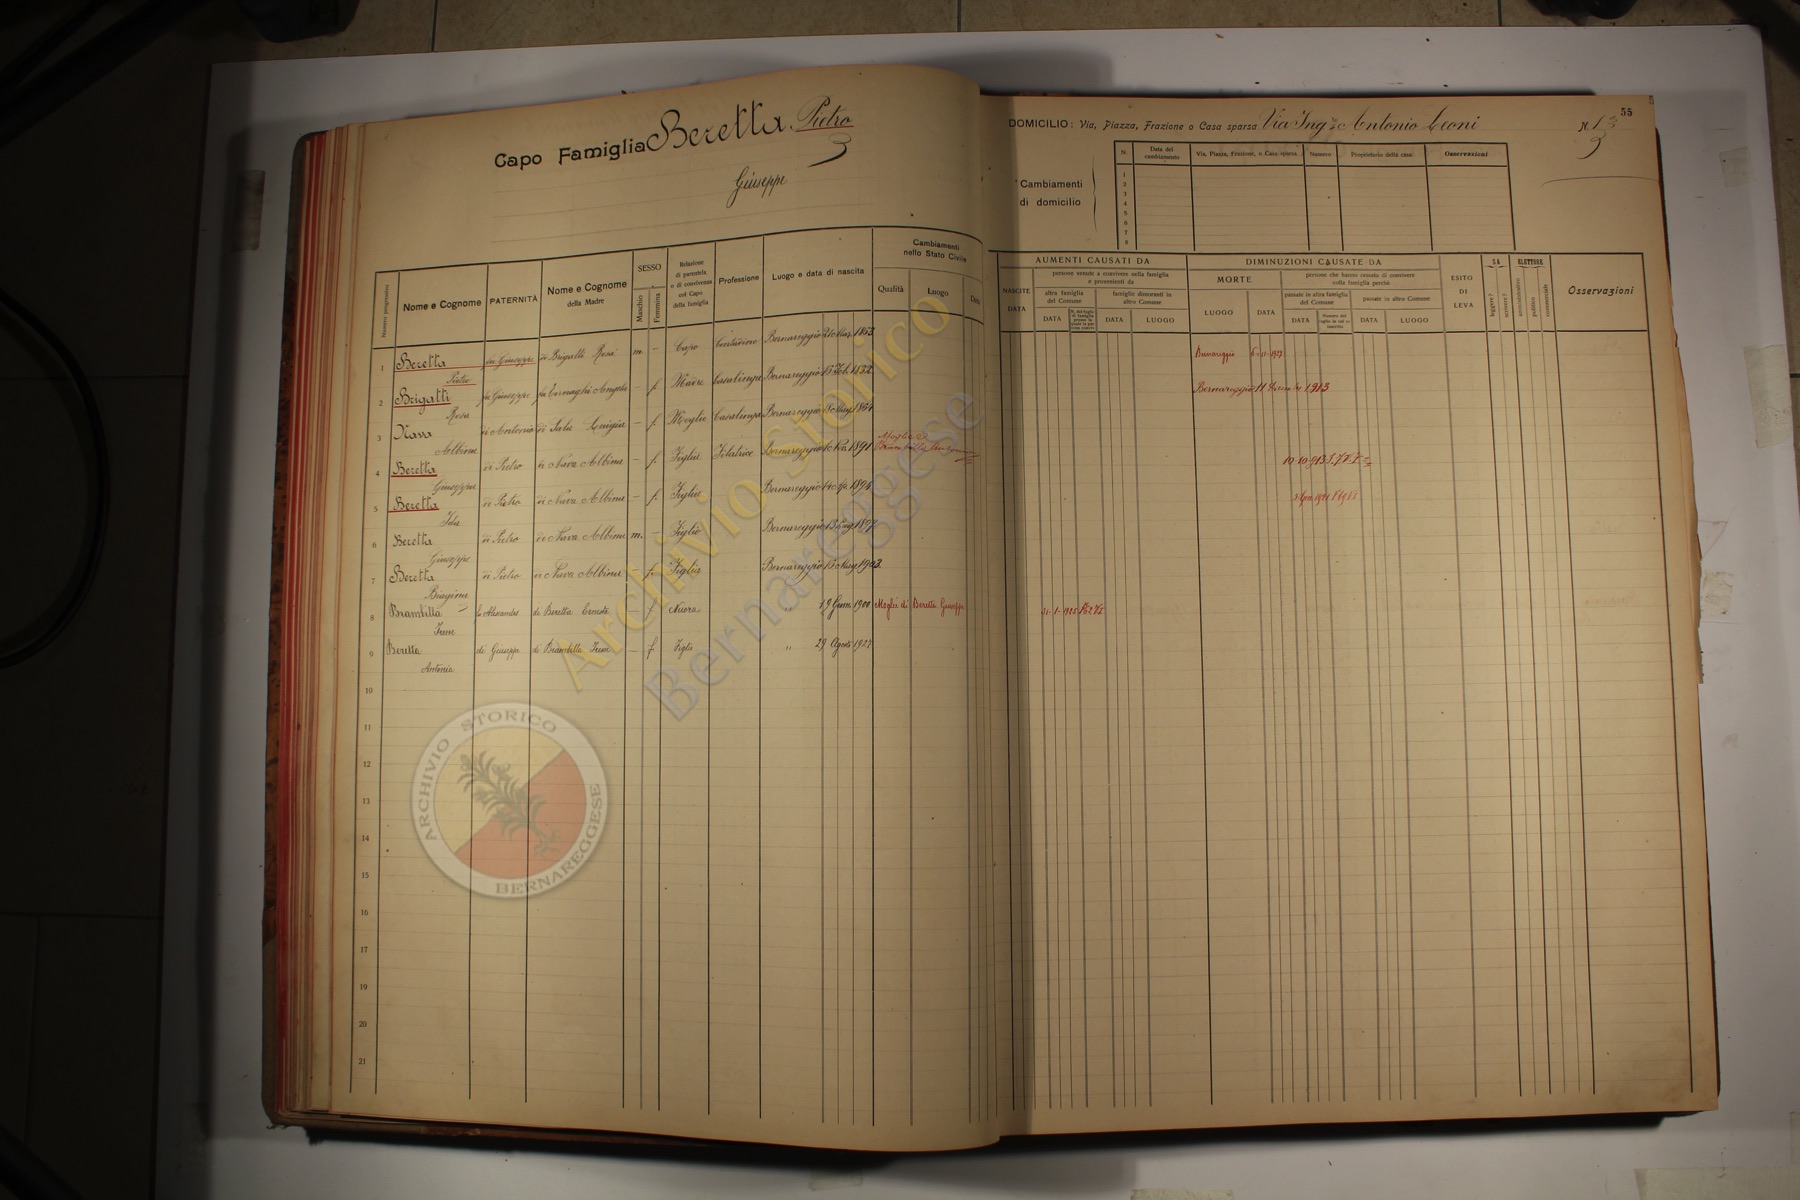 Capo Famiglia Beretta Pietro
Giuseppe
Numero progressivo
Nome e Cognome
PATERNITÀ
Nome e Cognome
della Madre
SESSO
Maschio
Femmina
Relazione
di parentela
o di convivenza
col Capo
della famiglia
Professione
Luogo e data di nascita
Cambiamenti
nello Stato Civile
Qualità
Luogo
Data
1 Beretta Pietro fu Giuseppe di Brigatti Rosa m. – Capo Contadino Bernareggio 1853
2 Brigatti Rosa fu Giuseppe fu Cornaghi Angela – f. Madre Casalinga Bernareggio 15 Feb. 1832
3 Nava Albina di Antonio di Sala Luigia – f. Moglie Casalinga Bernareggio
4 Beretta Giuseppa di Pietro di Nava Albina – f. Figlia Filatrice Bernareggio 1891 Moglie di Brambilla
5 Beretta Ida di Pietro di Nava Albina – f. Figlia Bernareggio 1894
6 Beretta Giuseppe di Pietro di Nava Albina m. – Figlio Bernareggio 1897
7 Beretta Biagina di Pietro di Nava Albina f. Figlia Bernareggio 15 1903
8 Brambilla Irene fu Alessandro di Beretta Ernesta f Nuora " 19 Genn. 1900 Moglie di Beretta Giuseppe
9 Beretta Antonia di Giuseppe di Brambilla Irene – f. Figlia " 29 Agosto 1927
10
11
12
13
14
15
16
17
18
19
20
21
DOMICILIO: Via, Piazza, Frazione o Casa sparsa Via Ing. Antonio Leoni
N. 13
55
Cambiamenti
di domicilio
N.
Data del
cambiamento
Via, Piazza, Frazione, o Casa sparsa
Numero
Proprietario della casa
Osservazioni
1
2
3
4
5
6
7
8
AUMENTI CAUSATI DA
NASCITE
DATA
persone venute a convivere nella famiglia
e provenienti da
altra famiglia
del Comune
famiglie dimoranti in
altro Comune
DATA
DATA
LUOGO
DIMINUZIONI CAUSATE DA
MORTE
LUOGO
DATA
persone che hanno cessato di convivere
colla famiglia perchè
passate in altra famiglia
del Comune
passate in altro Comune
DATA
DATA
LUOGO
ESITO
DI
LEVA
SA
leggere?
scrivere?
ELETTORE
amministrativo
politico
commerciale
Osservazioni
Bernareggio 6-11-1927
Bernareggio 11 1913
10-10-913
1921
31-1-1925
Archivio Storico
Bernareggese
ARCHIVIO STORICO
BERNAREGGESE